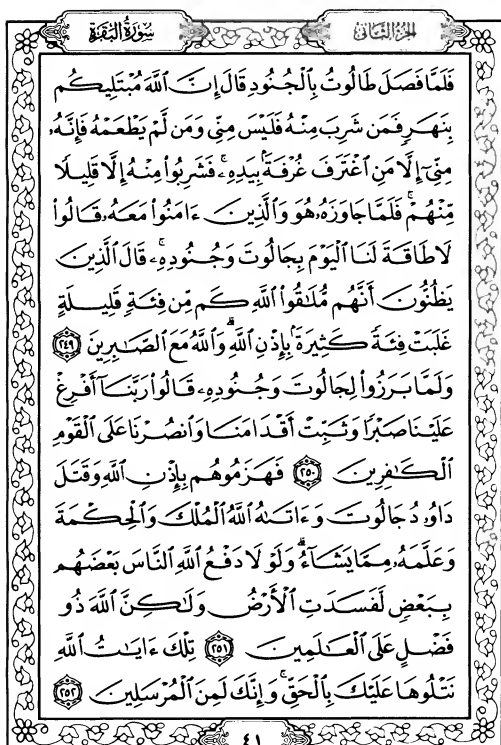 سُورَةُ الْبَقَرَةِ
الجزء الثاني
فَلَمَّا فَصَلَ طَالُوتُ بِٱلْجُنُودِ قَالَ إِنَّ ٱللَّهَ مُبْتَلِيكُم
بِنَهَرٍ فَمَن شَرِبَ مِنْهُ فَلَيْسَ مِنِّي وَمَن لَّمْ يَطْعَمْهُ فَإِنَّهُۥ
مِنِّيٓ إِلَّا مَنِ ٱغْتَرَفَ غُرْفَةَۢ بِيَدِهِۦۚ فَشَرِبُوا۟ مِنْهُ إِلَّا قَلِيلًا
مِّنْهُمْۚ فَلَمَّا جَاوَزَهُۥ هُوَ وَٱلَّذِينَ ءَامَنُوا۟ مَعَهُۥ قَالُوا۟
لَا طَاقَةَ لَنَا ٱلْيَوْمَ بِجَالُوتَ وَجُنُودِهِۦۚ قَالَ ٱلَّذِينَ
يَظُنُّونَ أَنَّهُم مُّلَٰقُوا۟ ٱللَّهِ كَم مِّن فِئَةٍ قَلِيلَةٍ
غَلَبَتْ فِئَةً كَثِيرَةَۢ بِإِذْنِ ٱللَّهِۗ وَٱللَّهُ مَعَ ٱلصَّٰبِرِينَ ٢٤٩
وَلَمَّا بَرَزُوا۟ لِجَالُوتَ وَجُنُودِهِۦ قَالُوا۟ رَبَّنَآ أَفْرِغْ
عَلَيْنَا صَبْرًا وَثَبِّتْ أَقْدَامَنَا وَٱنصُرْنَا عَلَى ٱلْقَوْمِ
ٱلْكَٰفِرِينَ ٢٥٠ فَهَزَمُوهُم بِإِذْنِ ٱللَّهِ وَقَتَلَ
دَاوُۥدُ جَالُوتَ وَءَاتَىٰهُ ٱللَّهُ ٱلْمُلْكَ وَٱلْحِكْمَةَ
وَعَلَّمَهُۥ مِمَّا يَشَآءُۗ وَلَوْلَا دَفْعُ ٱللَّهِ ٱلنَّاسَ بَعْضَهُم
بِبَعْضٍ لَّفَسَدَتِ ٱلْأَرْضُ وَلَٰكِنَّ ٱللَّهَ ذُو
فَضْلٍ عَلَى ٱلْعَٰلَمِينَ ٢٥١ تِلْكَ ءَايَٰتُ ٱللَّهِ
نَتْلُوهَا عَلَيْكَ بِٱلْحَقِّۚ وَإِنَّكَ لَمِنَ ٱلْمُرْسَلِينَ ٢٥٢
٤١